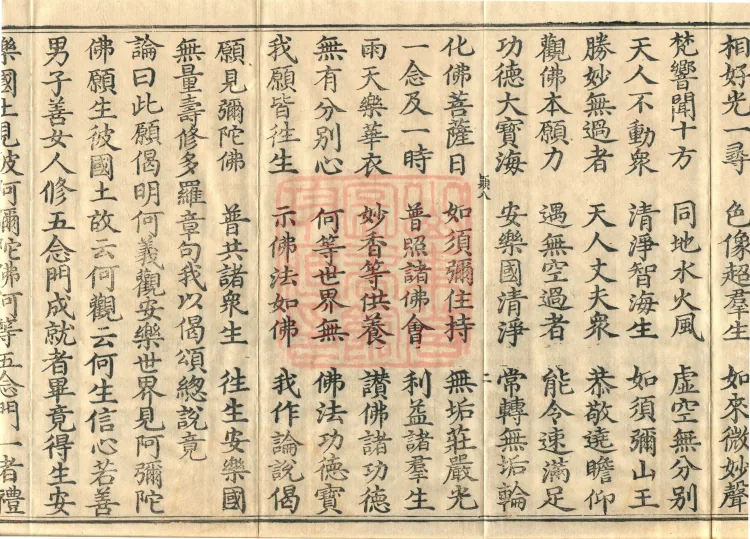 相好光一尋 色像超羣生 如來微妙聲
梵響聞十方 同地水火風 虛空無分別
天人不動衆 清淨智海生 如須彌山王
勝妙無過者 天人丈夫衆 恭敬遶瞻仰
觀佛本願力 遇無空過者 能令速滿足
功德大寶海 安樂國清淨 常轉無垢輪
化佛菩薩日 如須彌住持 無垢莊嚴光
一念及一時 普照諸佛會 利益諸羣生
雨天樂華衣 妙香等供養 讃佛諸功德
無有分別心 何等世界無 佛法功德寶
我願皆往生 示佛法如佛 我作論說偈
願見彌陀佛 普共諸衆生 往生安樂國
無量壽修多羅章句我以偈頌總說竟
論曰此願偈明何義觀安樂世界見阿彌陀
佛願生彼國土故云何觀云何生信心若善
男子善女人修五念門成就者畢竟得生安
樂國土見彼阿彌陀佛何等五念門一者禮